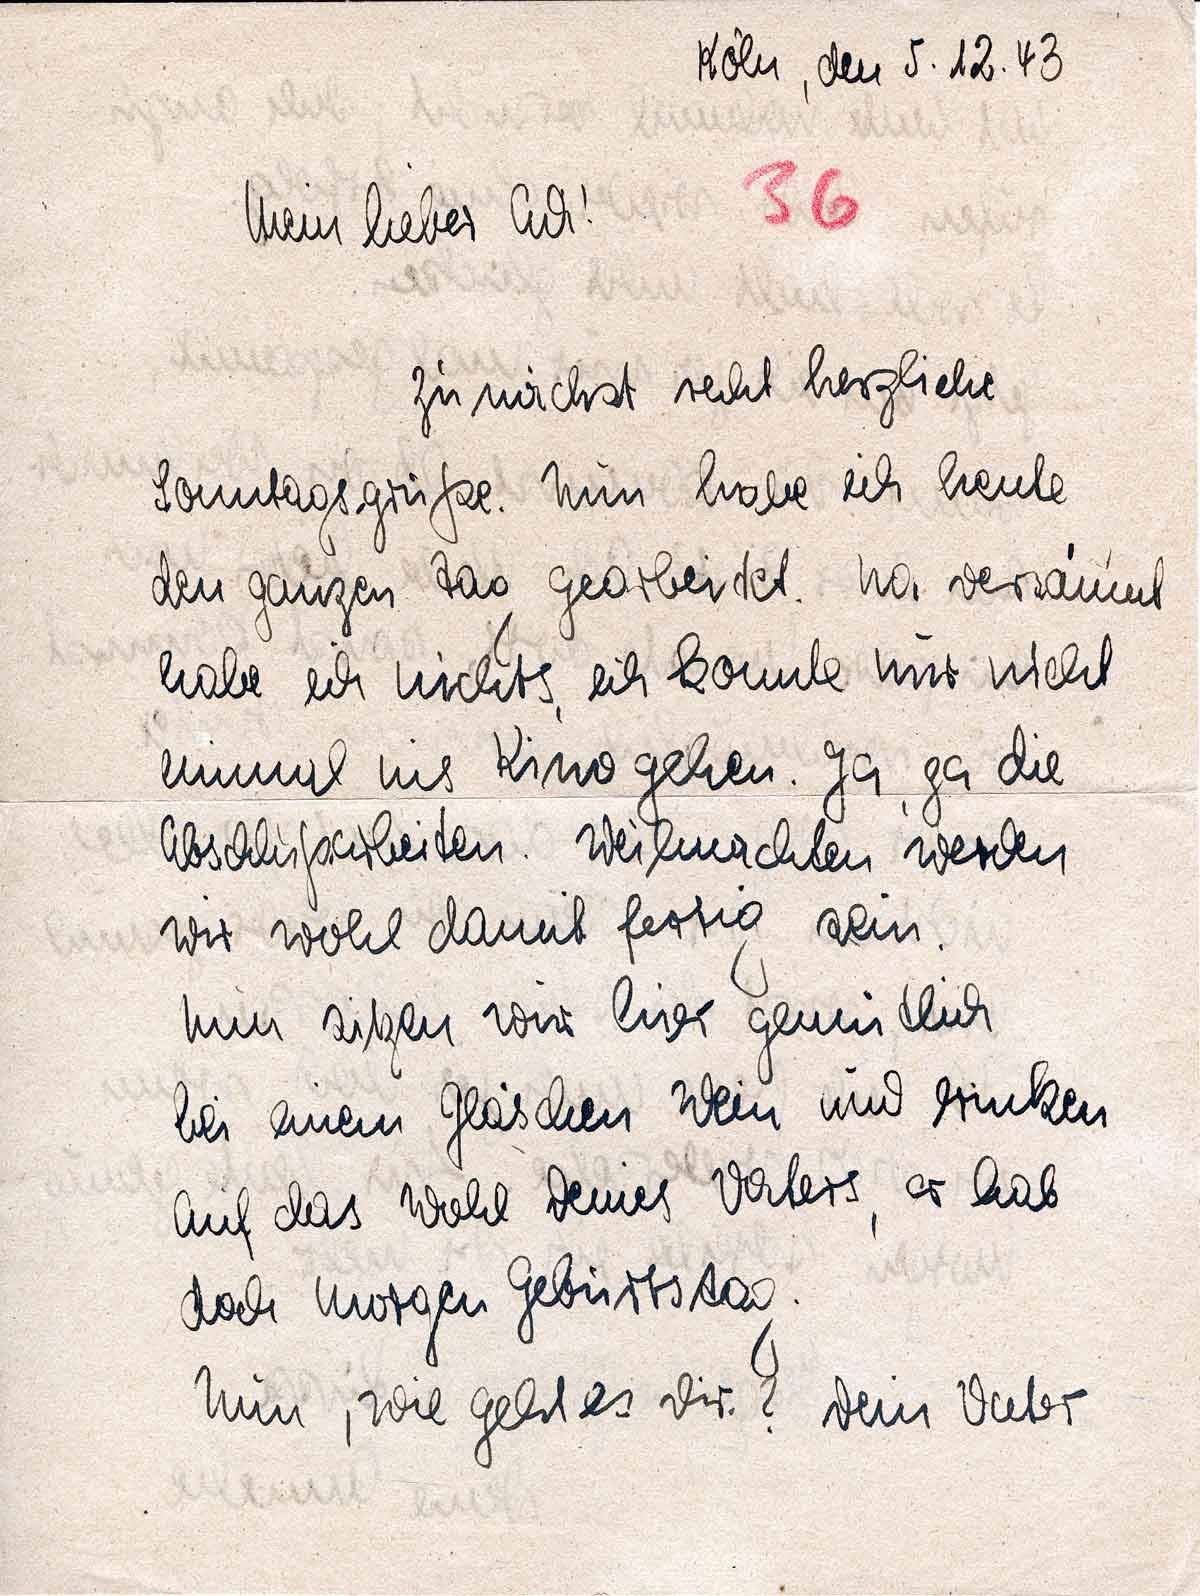 Köln, den 5.12.43
36
Mein lieber Adi!
Zunächst recht herzliche
Sonntagsgrüße. Nun habe ich heute
den ganzen Tag gearbeitet. Na versäumt
habe ich nichts, ich konnte nur nicht
einmal ins Kino gehen. Ja, ja die
Abschlußarbeiten. Weihnachten werden
wir wohl damit fertig sein.
Nun sitzen wir hier gemütlich
bei einem Gläschen Wein und trinken
auf das Wohl Deines Vaters, er hat
doch morgen Geburtstag.
Nun, wie geht es Dir? Dein Vater